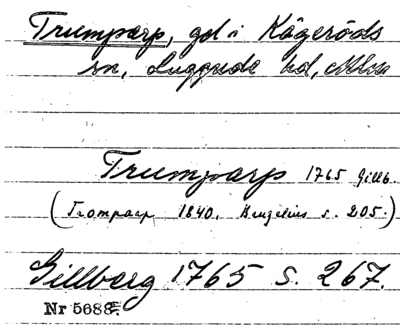 Trumparp, gd i Kågeröds
sn, Luggude hd, Mlm
Trumparp 1765 Gillb.
(Tromparp 1840. Bengelius s. 205.)
Gillberg 1765 s. 267.
Nr 5688.